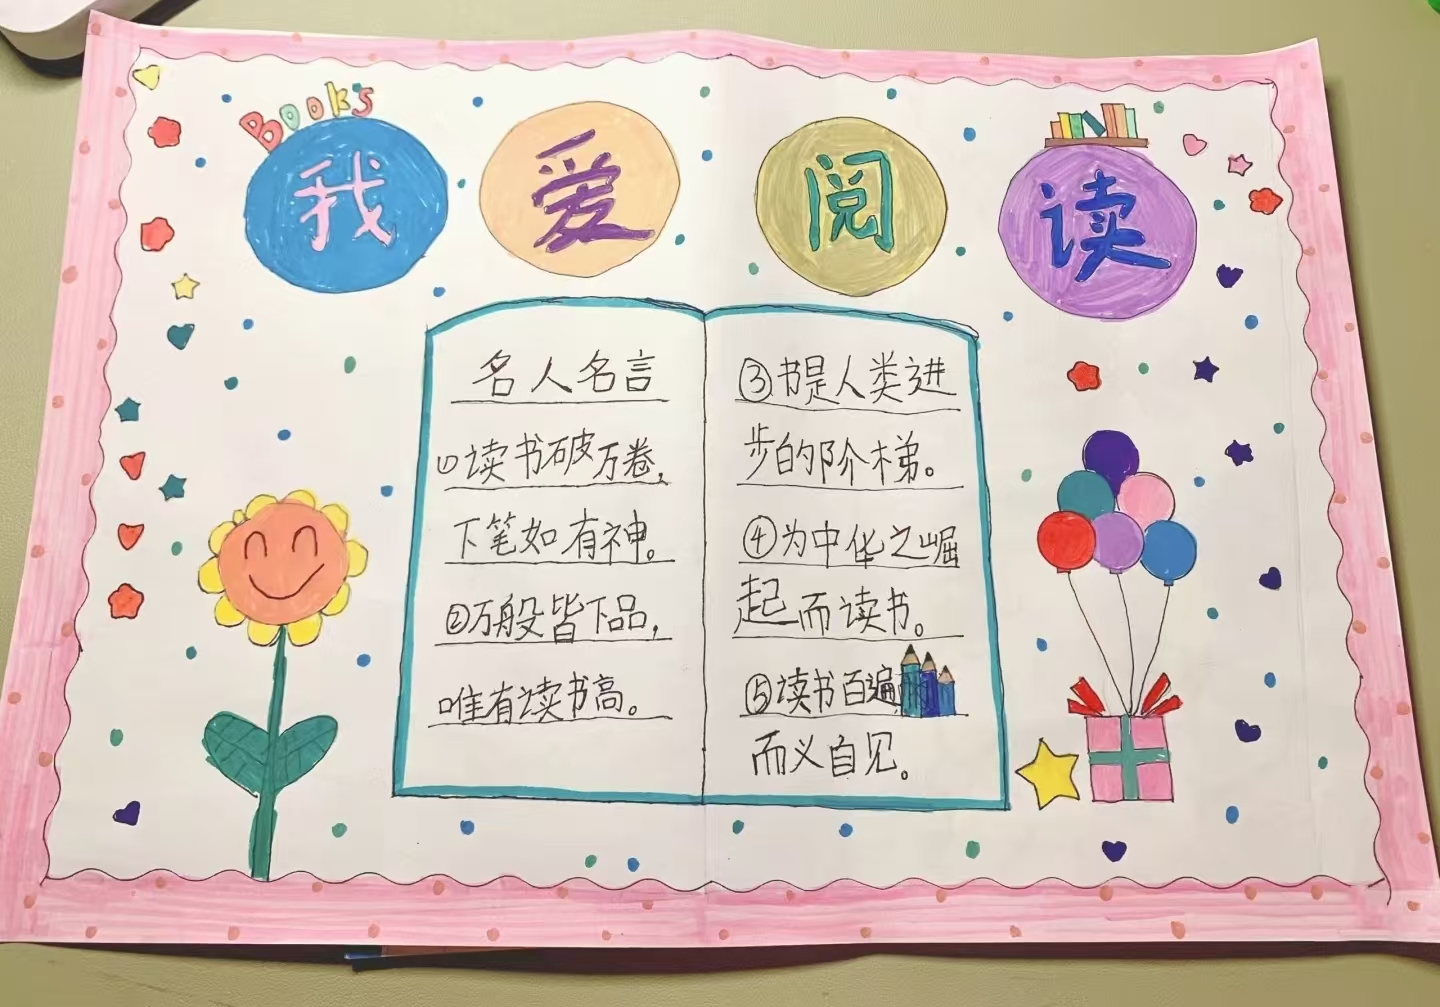 Books
我爱阅读
名人名言
①读书破万卷，
下笔如有神。
②万般皆下品，
唯有读书高。
③书是人类进
步的阶梯。
④为中华之崛
起而读书。
⑤读书百遍
而义自见。